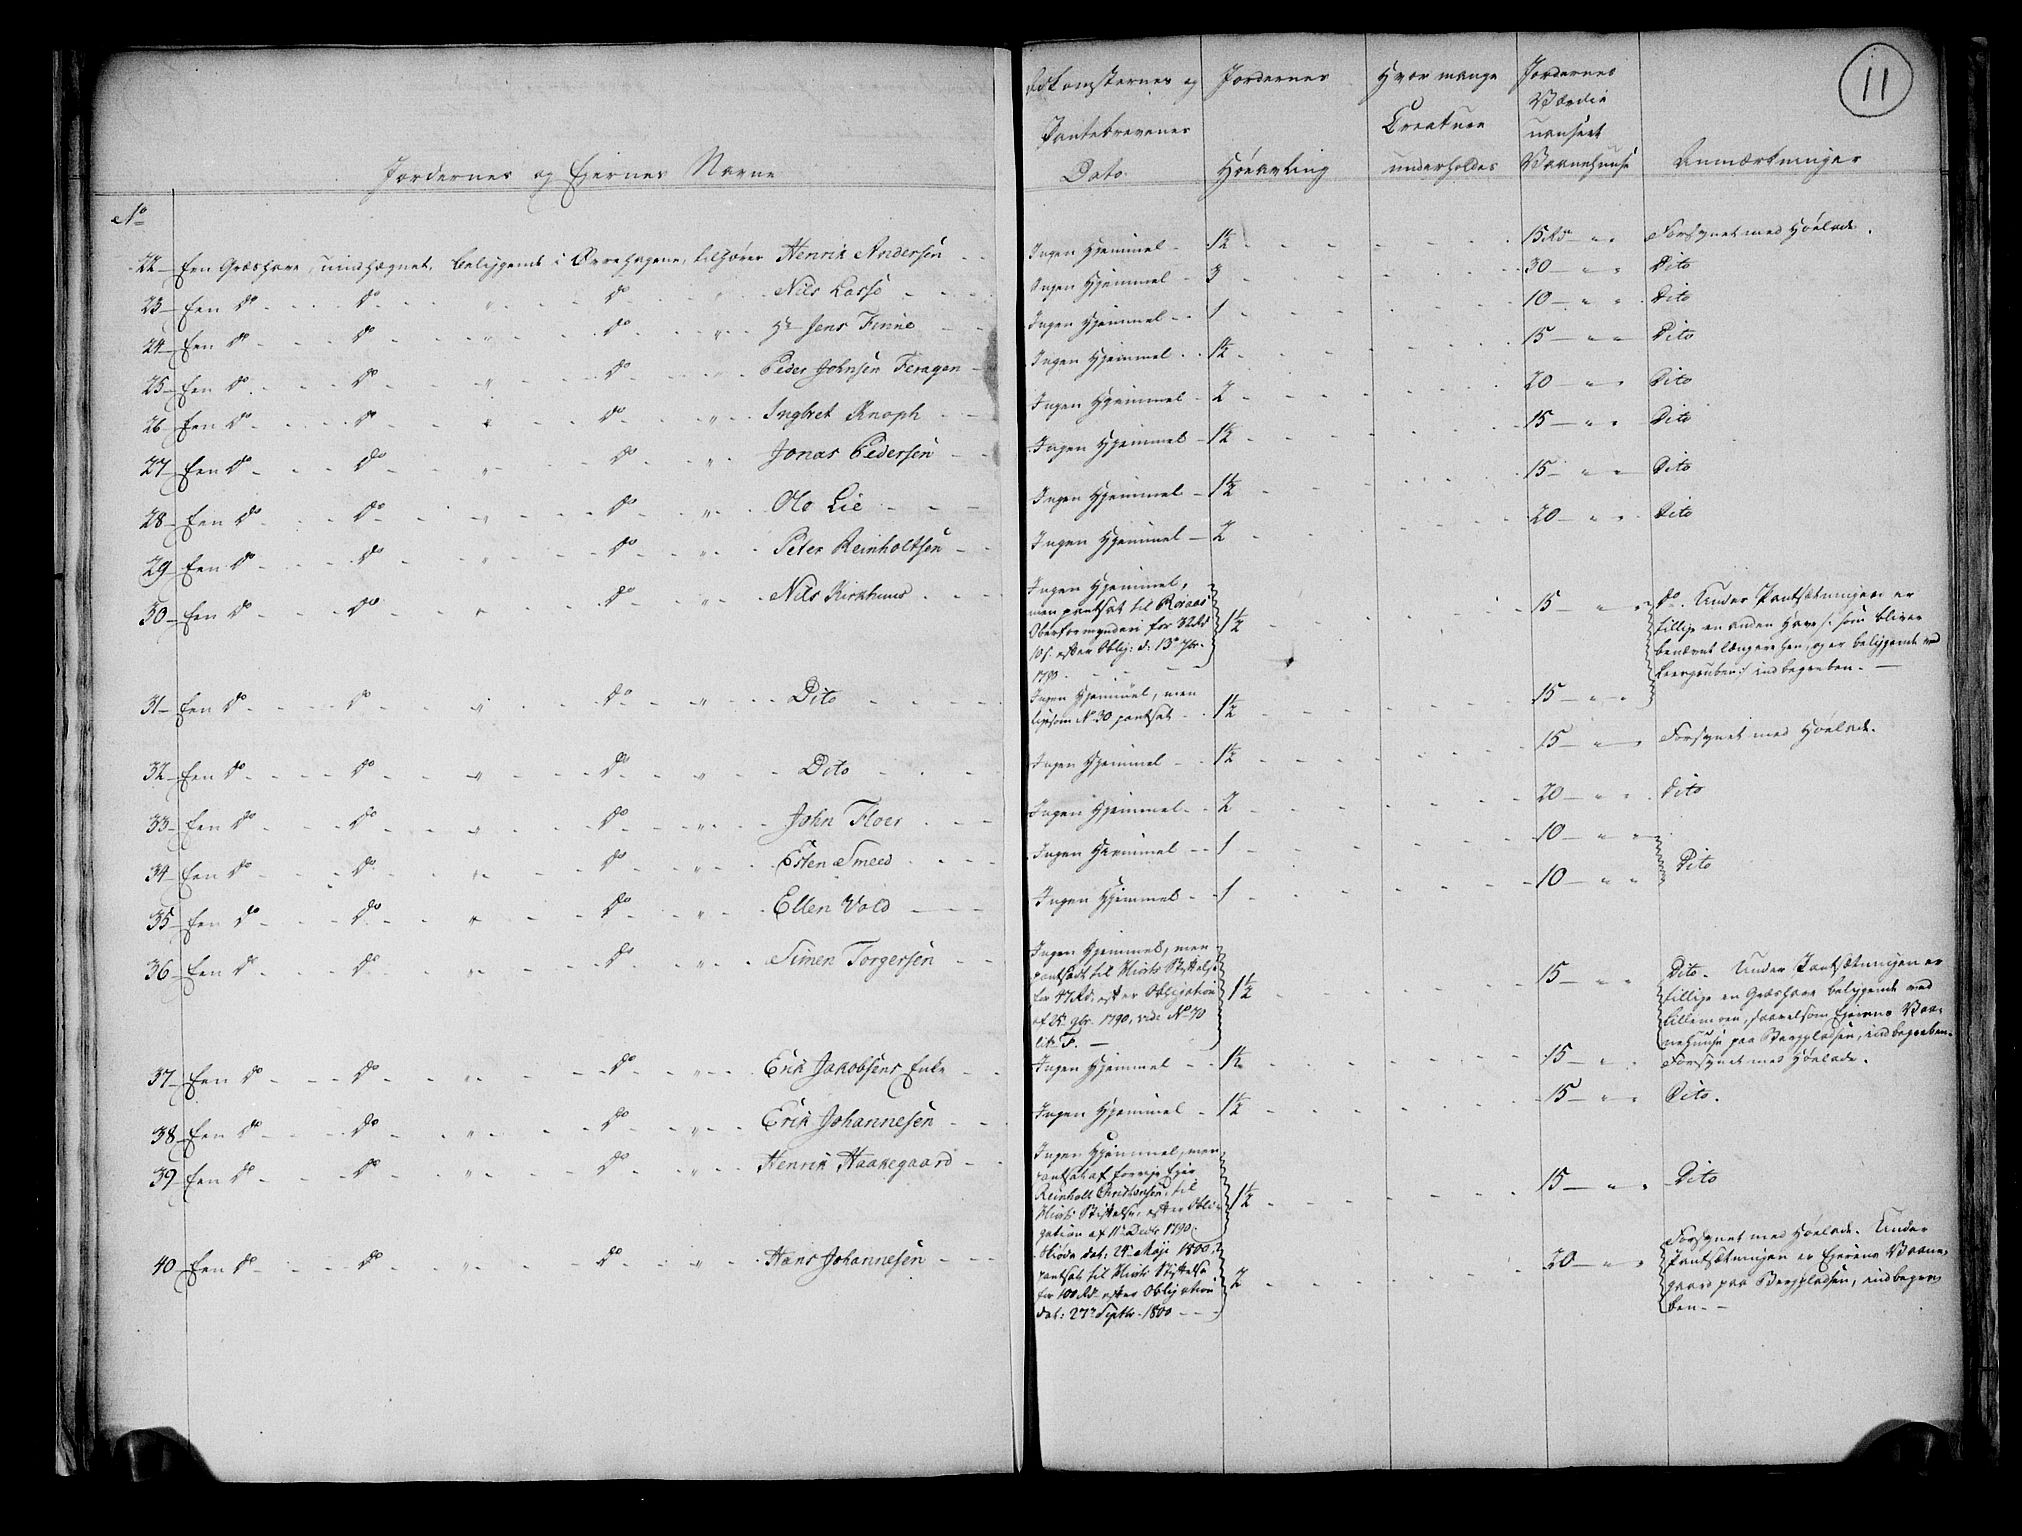 11
Jordernes og Ejernes Navne
Adkomsternes og Pantebrevenes Dato.
Jordernes Høeavling
Hvor mange Creature underholdes
Jordernes Værdie uanseet Vaanehuuse
Anmærkninger
No
22 – Een Græshave, indhægnet, beliggende i Øvrehagene, tilhører Henrik Andersen - - Ingen Hjemmel - 1½ - - - 15 Rd – " " Forsynet med Høelade.
23 – Een do - - do " do " Nils Lasse - - - Ingen Hjemmel - 3 - - - 30 – " " Dito
24 – Een do - - do " do " Hr Jens Finne - - Ingen Hjemmel - - 1 - - - 10 – " " Dito
25 – Een do - - do " do " Peder Johnsen Feragen - Ingen Hjemmel - - 1½ - - - 15 – " " Dito
26 – Een do - - do " do " Ingbret Knoph - - Ingen Hjemmel - 2 - - - 20 – " " Dito
27 – Een do - - do " do " Jonas Pedersen - - Ingen Hjemmel - 1½ - - - 15 – " " Dito
28 – Een do - - do " do " Ole Lie - - - Ingen Hjemmel - 1½ - - - 15 – " " Dito
29 – Een do - - do " do " Peter Reinholtsen - - Ingen Hjemmel - 2 - - - 20 – " " Dito
30 – Een do - - do " do " Nils Kirkhuus - - - 1½ - - - 15 – " "
Ingen Hjemmel,
men pantsat til Røraas
Oberformynderi for 32 Rd
10 s. efter Oblig: d: 13de 7br.
1790.
do. Under Pantsætningen er
tillige en anden Have /: som bliver
benævnt længere hen, og er beliggende ved
Leergruben :/ indbegreben. –
31 – Een do - - do " do " Dito - - - 1½ - - - 15 – " "
Ingen Hjemmel, men
ligesom No 30 pantsat - -
32 – Een do - - do " do " Dito - - - Ingen Hjemmel - - 1½ - - - 15 – " " Forsynet med Høelade.
33 – Een do - - do " do " John Floer - - - Ingen Hjemmel - - 2 - - - 20 – " " Dito
34 – Een do - - do " do " Esten Smeed - - - Ingen Hjemmel - - 1 - - - 10 – " "
35 – Een do - - do " do " Ellen Vold - - - Ingen Hjemmel - 1 - - - 10 – " " Dito
36 – Een do - - do " do " Simen Torgersen - - 1½ - - - 15 – " "
Ingen Hjemmel, men
pantsadt til Hiorts Stiftelse
for 47 Rd. efter Obligation
af 25de 9br. 1790, vide No 70
litr. F. –
Dito. Under Pantsætningen er
tillige en Græshave beliggende ved
Lillemoen, saavelsom Ejerens Vaa-
nehuuse paa Bergpladsen, indbegreben.
37 – Een do - - do " do " Erik Jakobsens Enke - - Ingen Hjemmel - - 1½ - - - 15 – " " Forsynet med Høelade.
38 – Een do - - do " do " Erik Johannesen - - Ingen Hjemmel - 1½ - - - 15 – " " Dito.
39 – Een do - - do " do " Henrik Haakegaard - - 1½ - - - 15 – " " Dito
Ingen Hjemmel, men
pantsat af forrige Ejer
Reinholt Christensen, til
Hiorts Stiftelse, efter Obli-
gation af 11te Decbr 1790.
40 – Een do - - do " do " Hans Johannesen - - - 2 - - - 20 – " "
Skiøde dat: 24de Maji 1800,
pantsat til Hiorts Stiftelse
for 100 Rd. efter Obligation
dat: 27de Septbr. 1800 - - -
Forsynet med Høelade. Under
Pantsætningen er Ejerens Vaane-
gaard paa Bergpladsen, indbegre-
ben. –